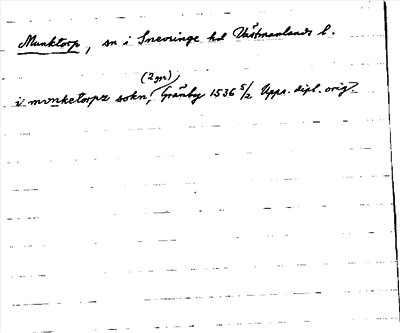 Munktorp, sn i Snevringe hd Västmanlands l.
(2 gr)
i mvnketorpz sokn, Gränby 1536 5/2 Upps. dipl. orig.